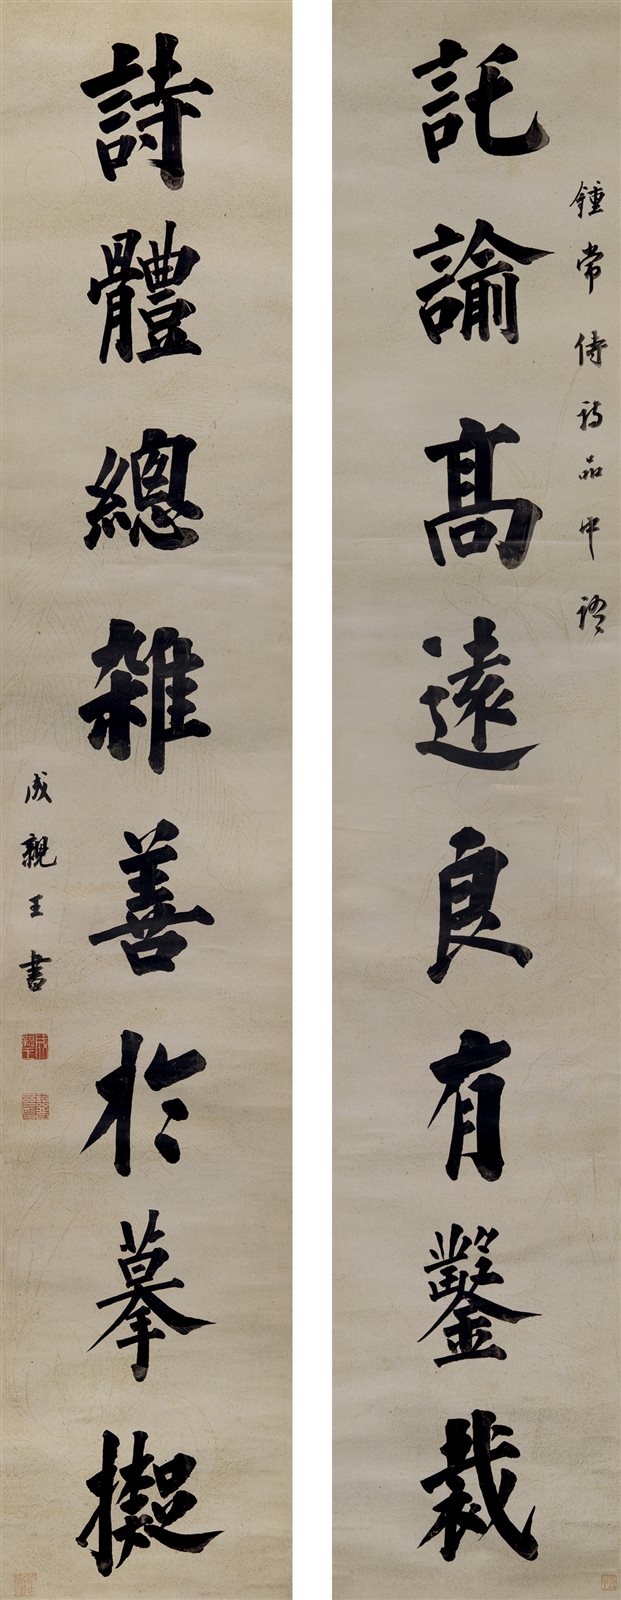 鍾常侍詩品中語
託諭高遠良有鑿裁
詩體總雜善於摹擬
成親王書